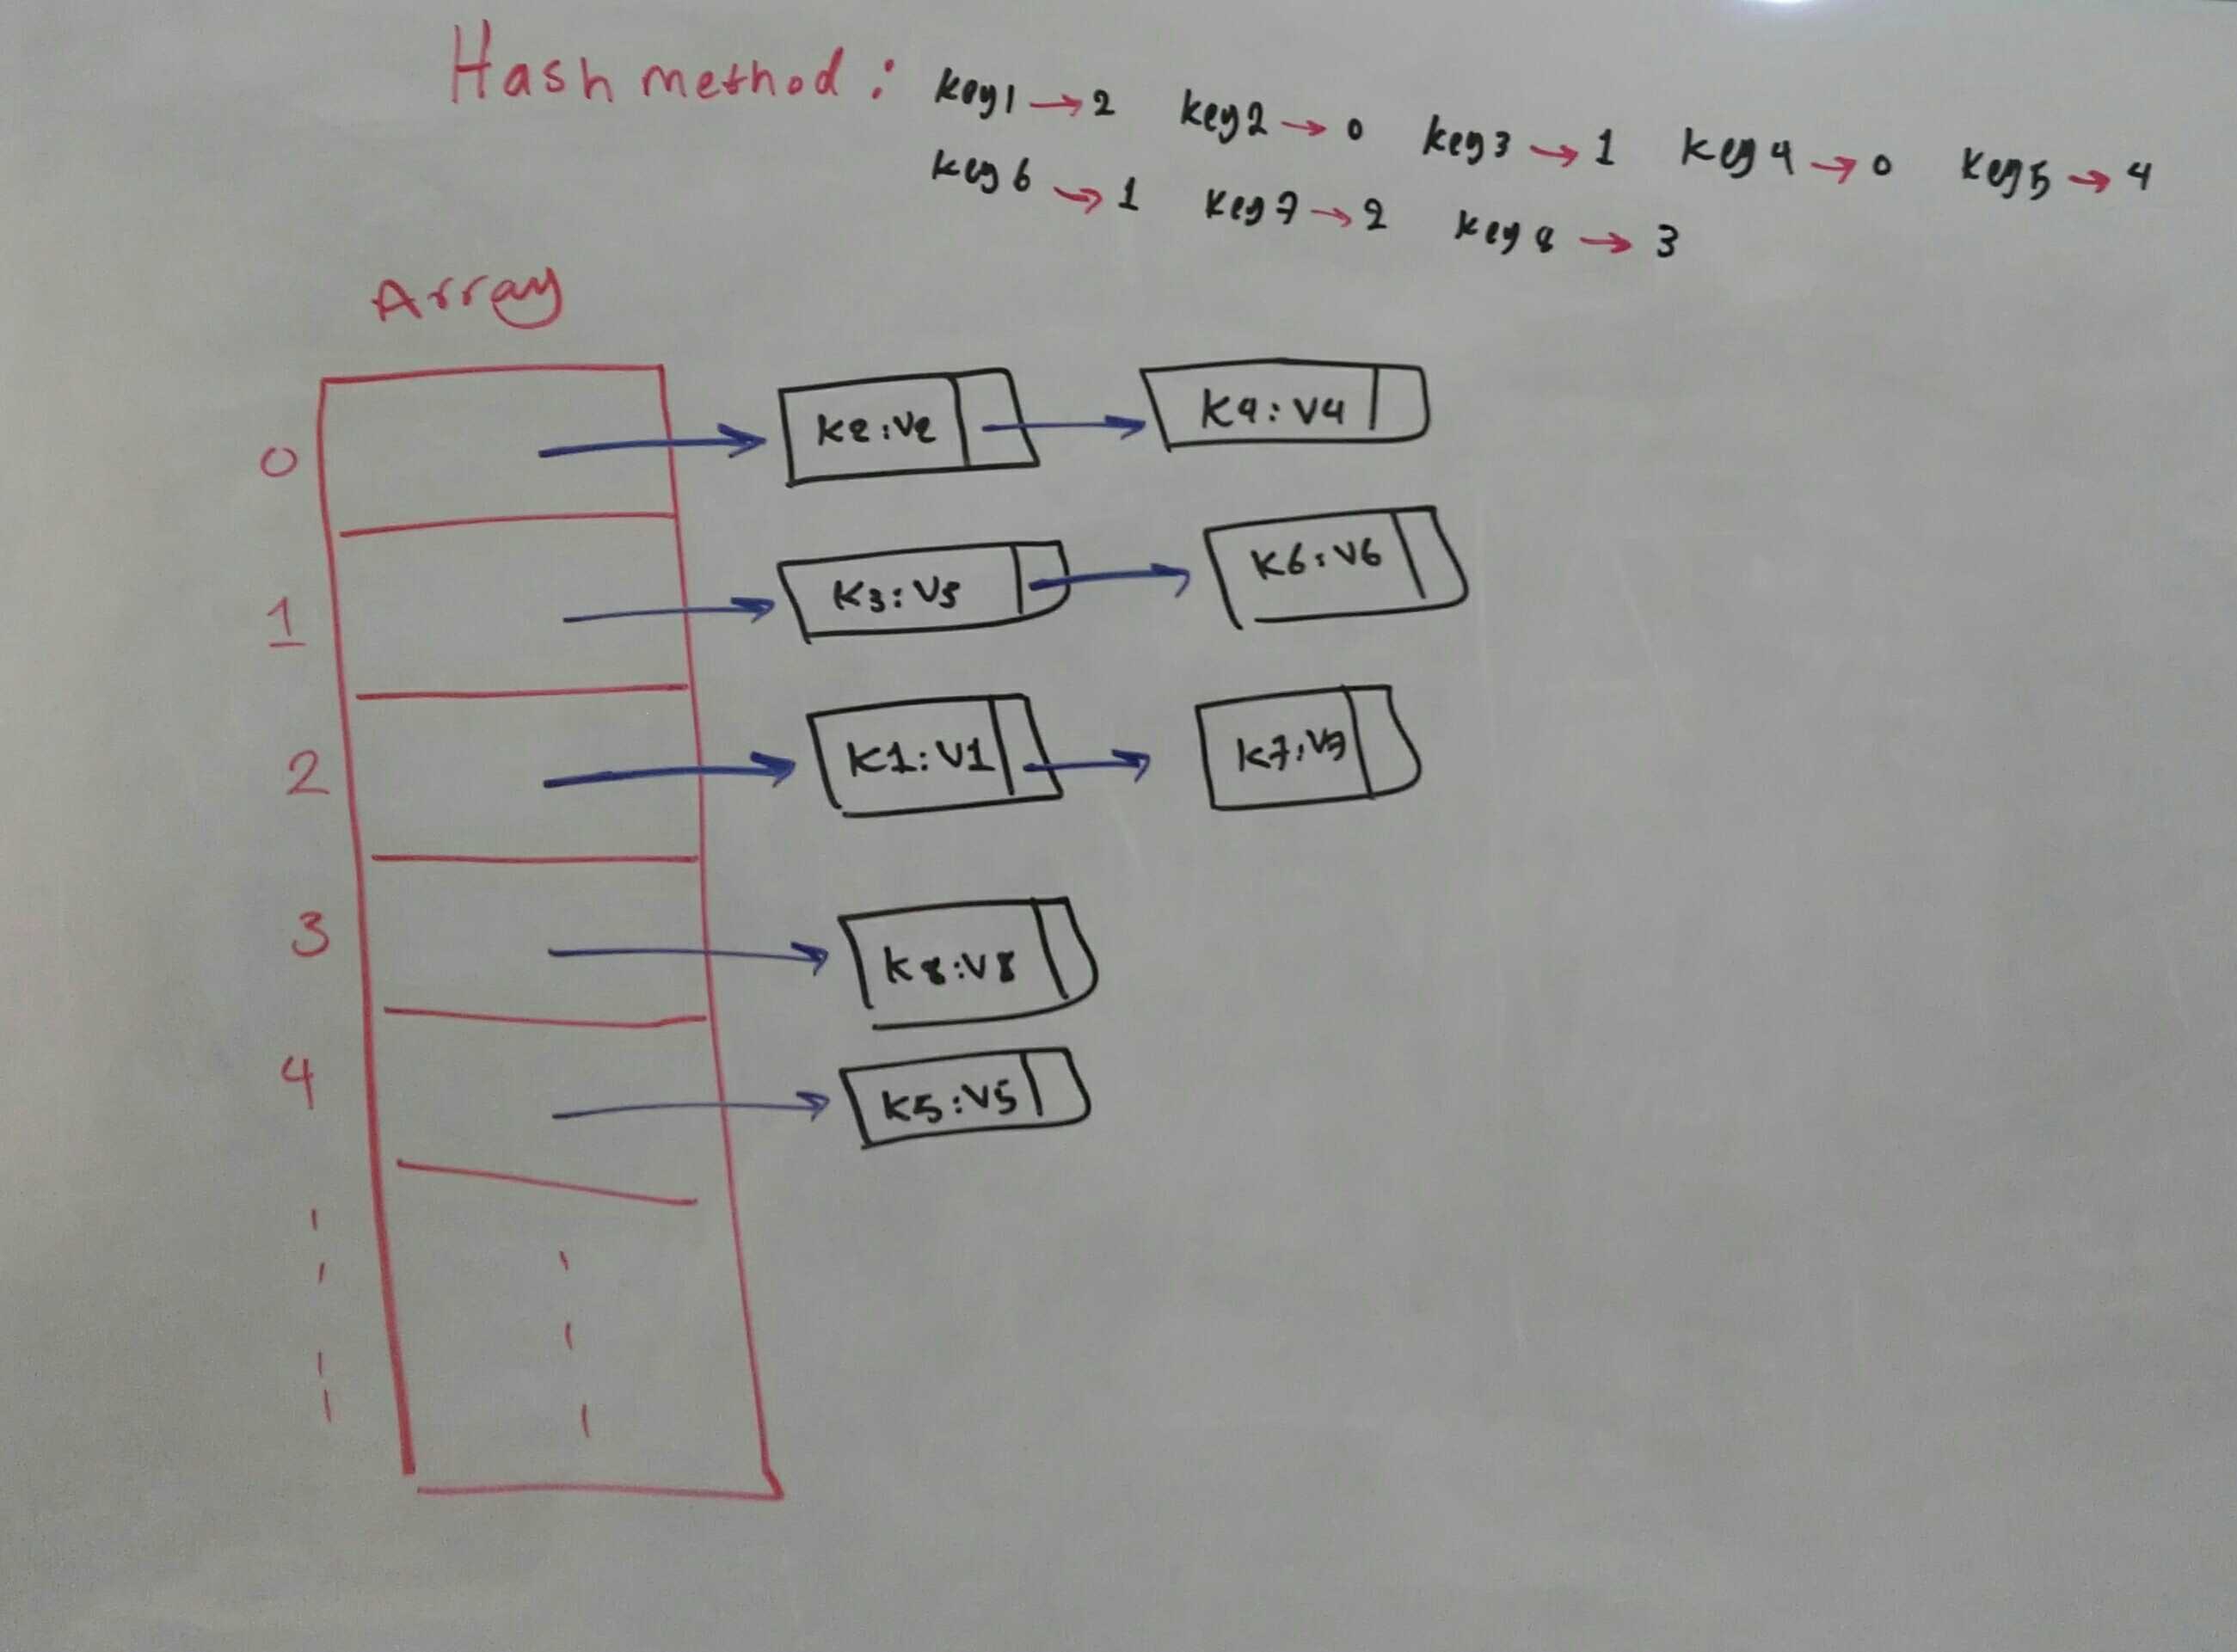 Hash method : key1 → 2 key2 → 0 key3 → 1 key4 → 0 key5 → 4
key6 → 1 key7 → 2 key8 → 3
Array
0 K2:V2 K4:V4
1 K3:V3 K6:V6
2 K1:V1 K7:V7
3 K8:V8
4 K5:V5